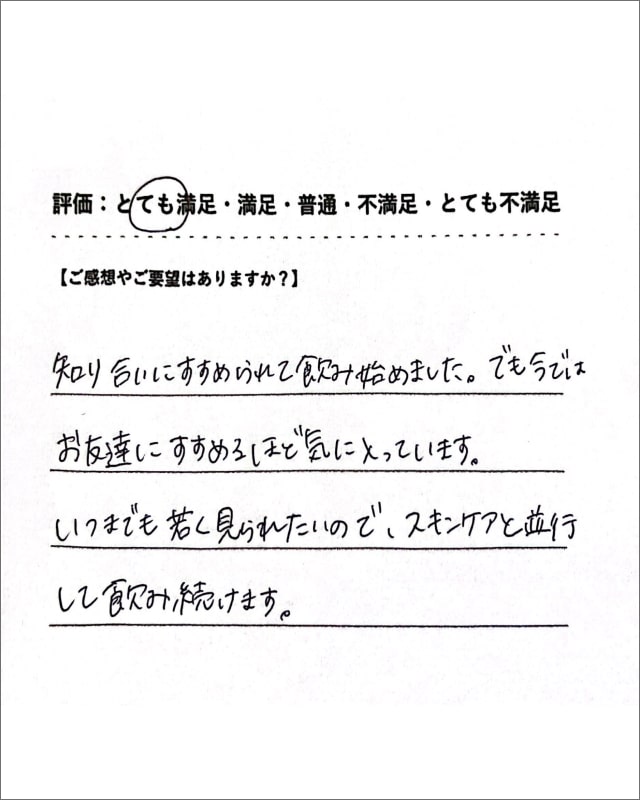 評価：とても満足・満足・普通・不満足・とても不満足
【ご感想やご要望はありますか？】
知り合いにすすめられて飲み始めました。でも今では
お友達にすすめるほど気にとっています。
いつまでも若く見られたいので、スキンケアと並行
して飲み続けます。